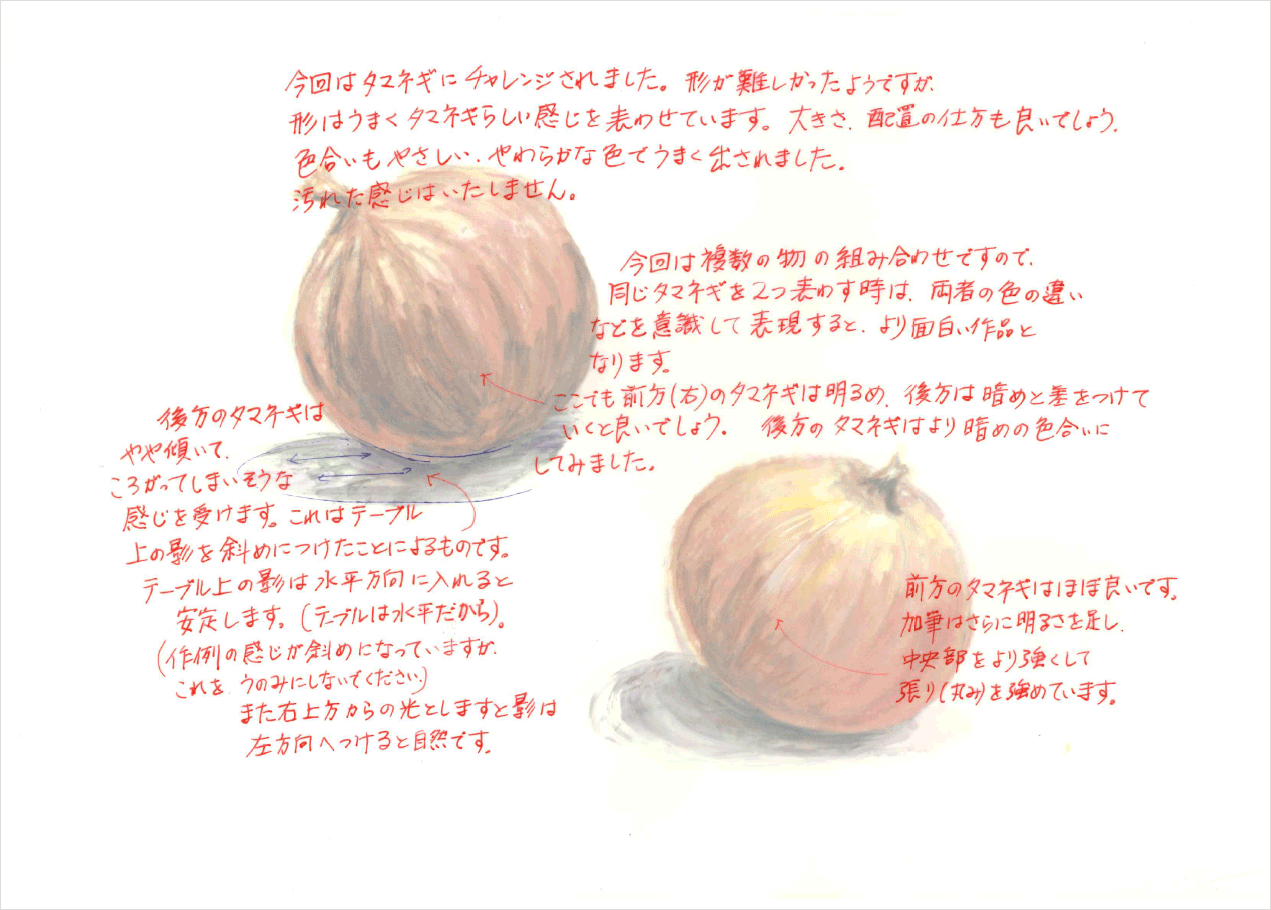 今回はタマネギにチャレンジされました。形が難しかったようですが、
形はうまくタマネギらしい感じを表わせています。大きさ、配置の仕方も良いでしょう。
色合いもやさしい、やわらかな色でうまく出されました。
汚れた感じはいたしません。
今回は複数の物の組み合わせですので、
同じタマネギを2つ表わす時は、両者の色の違い
などを意識して表現すると、より面白い作品と
なります。
ここでも前方(右)のタマネギは明るめ、後方は暗めと差をつけて
いくと良いでしょう。 後方のタマネギはより暗めの色合いに
してみました。
後方のタマネギは
やや傾いて、
ころがってしまいそうな
感じを受けます。これはテーブル
上の影を斜めにつけたことによるものです。
テーブル上の影は水平方向に入れると
安定します。(テーブルは水平だから)。
(作例の感じが斜めになっていますが、
これを、うのみにしないでください)
また右上方からの光としますと影は
左方向へつけると自然です。
前方のタマネギはほぼ良いです。
加筆はさらに明るさを足し、
中央部をより強くして
張り(丸み)を強めています。